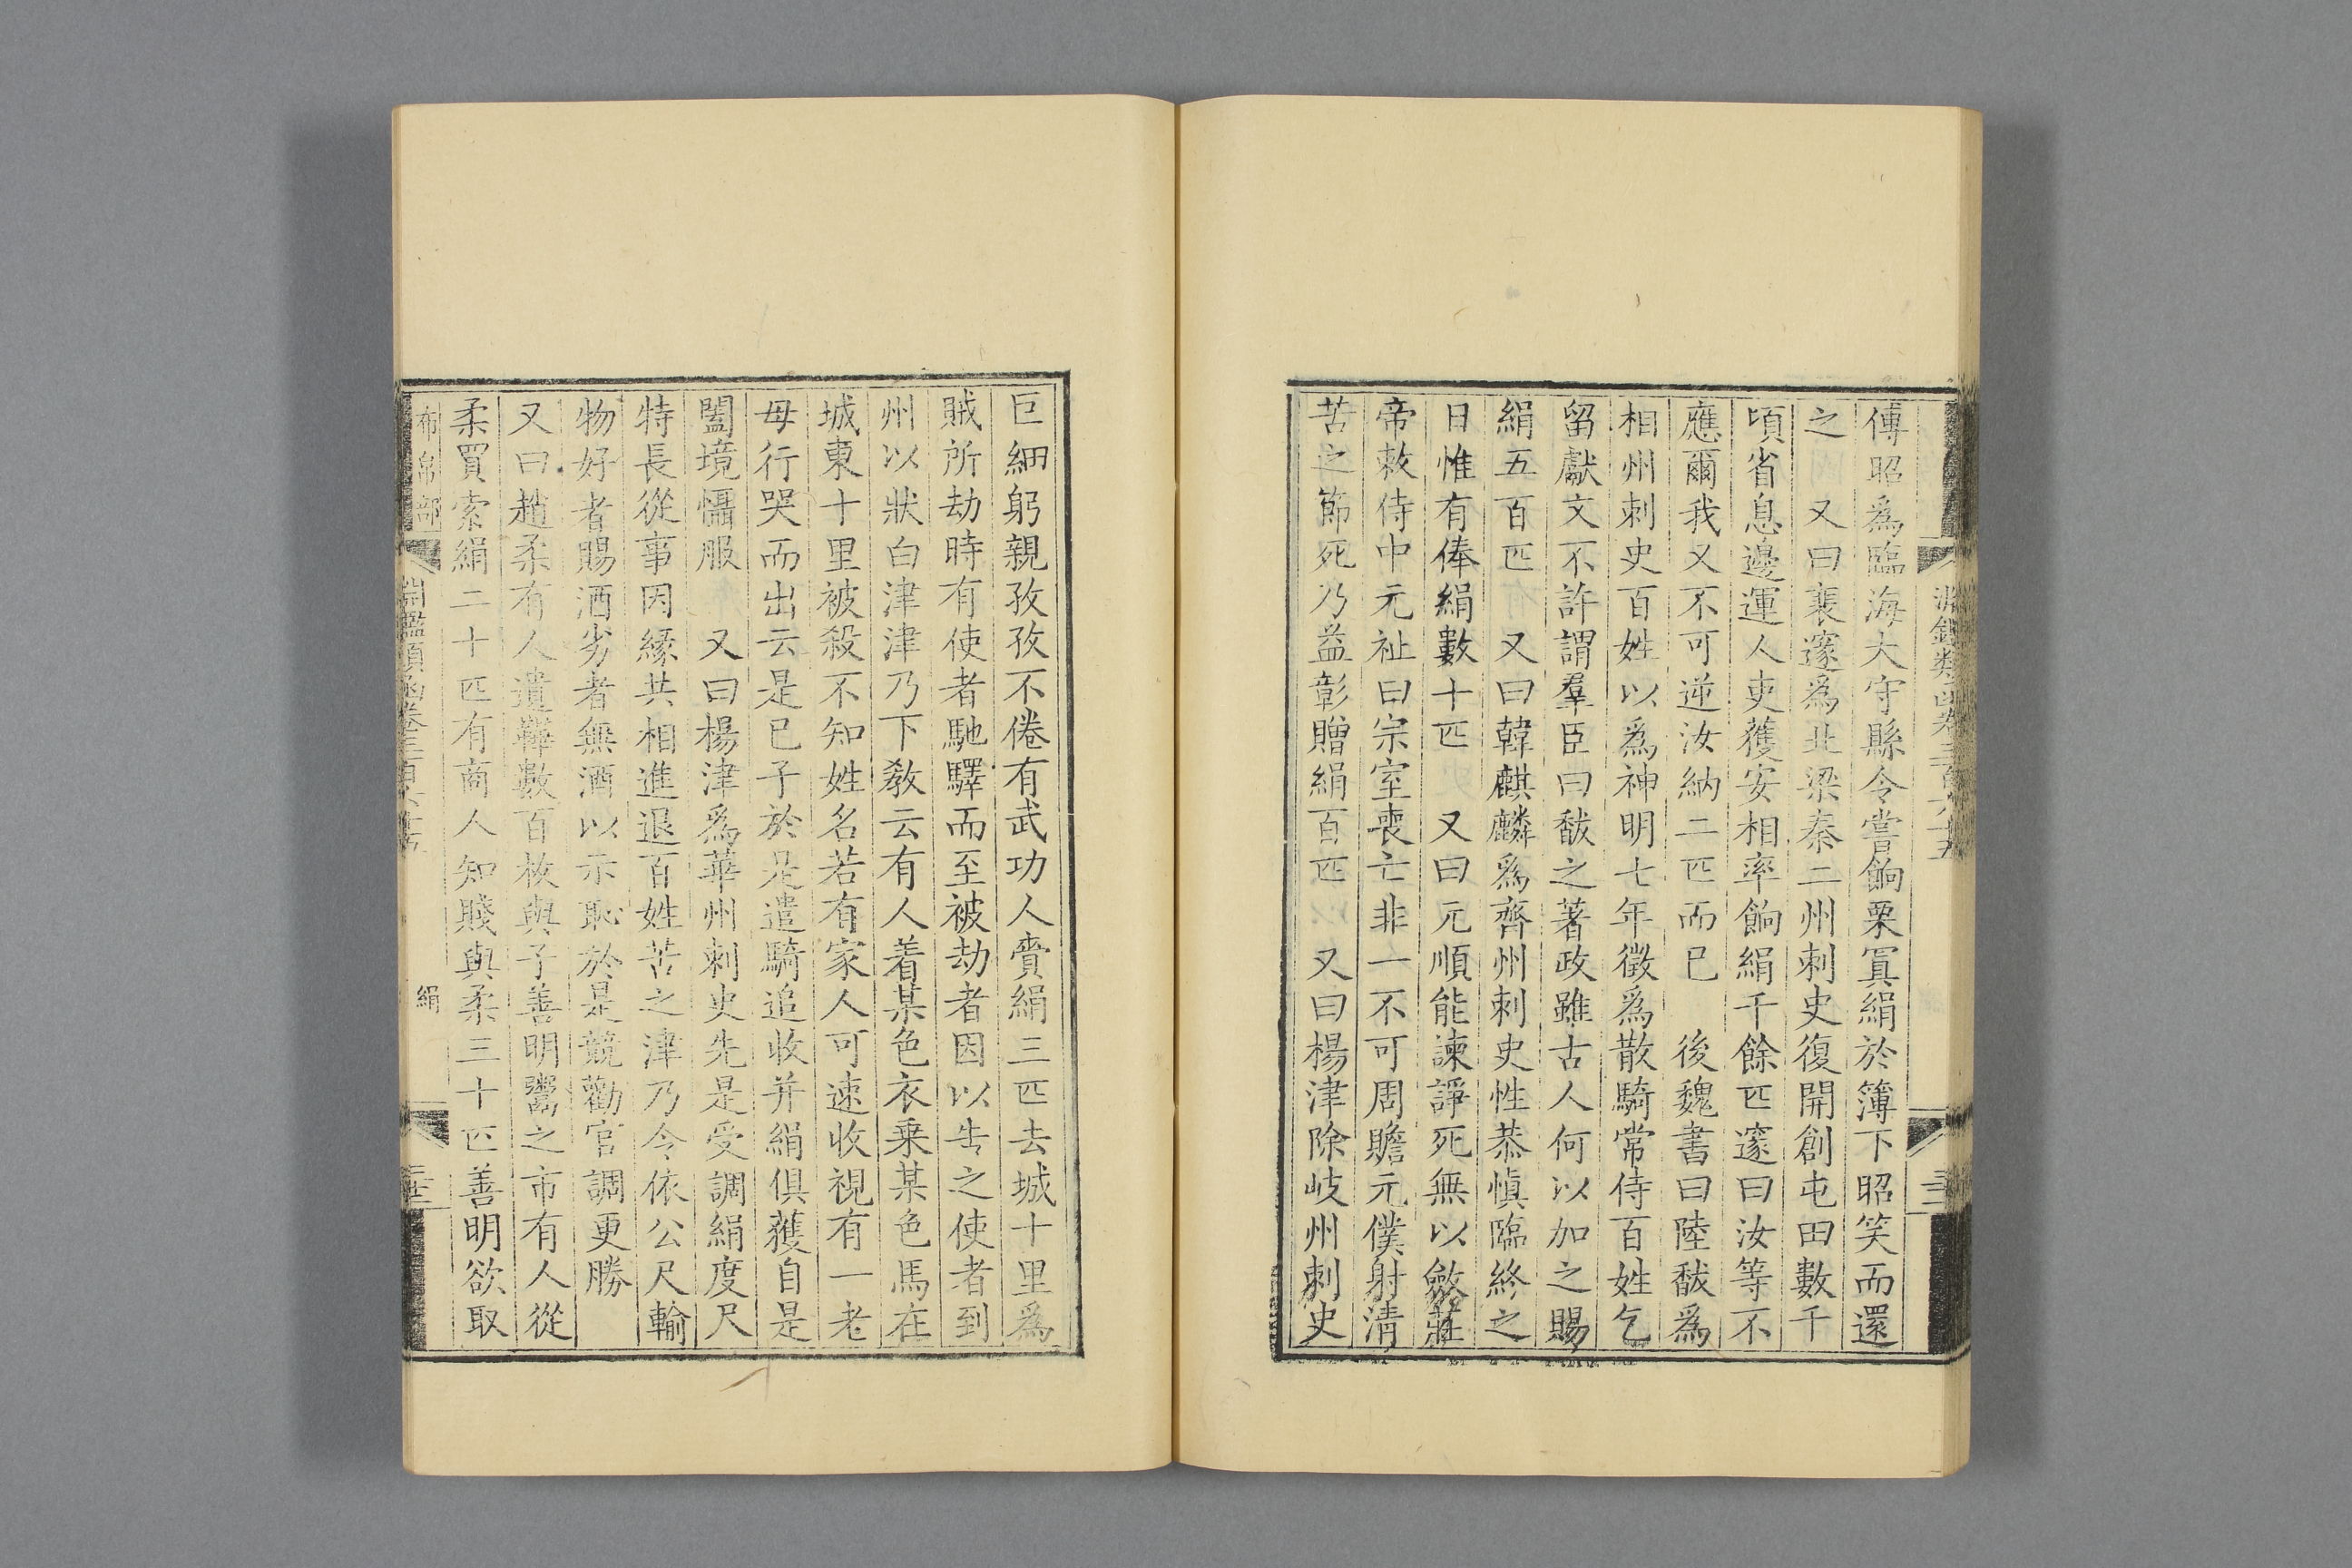 淵鑑類函卷三百六十五
傅昭爲臨海大守縣令嘗餉粟寘絹於簿下昭笑而還
之　又曰裴邃爲北梁秦二州刺史復開創屯田數千
頃省息邊運人吏獲安相率餉絹千餘匹邃曰汝等不
應爾我又不可逆汝納二匹而已　後魏書曰陸馛爲
相州刺史百姓以爲神明七年徵爲散騎常侍百姓乞
留獻文不許謂羣臣曰馛之著政雖古人何以加之賜
絹五百匹　又曰韓麒麟爲齊州刺史性恭慎臨終之
日惟有俸絹數十匹　又曰元順能諫諍死無以斂莊
帝敕侍中元祉曰宗室喪亡非一不可周贍元僕射清
苦之節死乃益彰贈絹百匹　又曰楊津除岐州刺史
巨細躬親孜孜不倦有武功人賫絹三匹去城十里爲
賊所劫時有使者馳驛而至被劫者因以告之使者到
州以狀白津津乃下敎云有人着某色衣乗某色馬在
城東十里被殺不知姓名若有家人可速收視有一老
母行哭而出云是已子於是遣騎追收并絹俱獲自是
闔境懾服　又曰楊津爲華州刺史先是受調絹度尺
特長從事因緣共相進退百姓苦之津乃令依公尺輸
物好者賜酒劣者無酒以示恥於是競勸官調更勝
又曰趙柔有人遺鏵數百枚與子善明鬻之市有人從
柔買索絹二十匹有商人知賤與柔三十匹善明欲取
布帛部　淵鑑類函卷三百六十五　絹